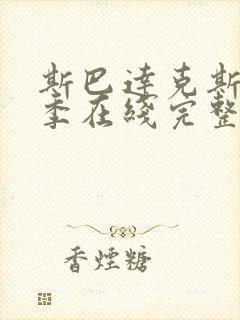 斯巴達克斯
季在綫完整
香煙糖